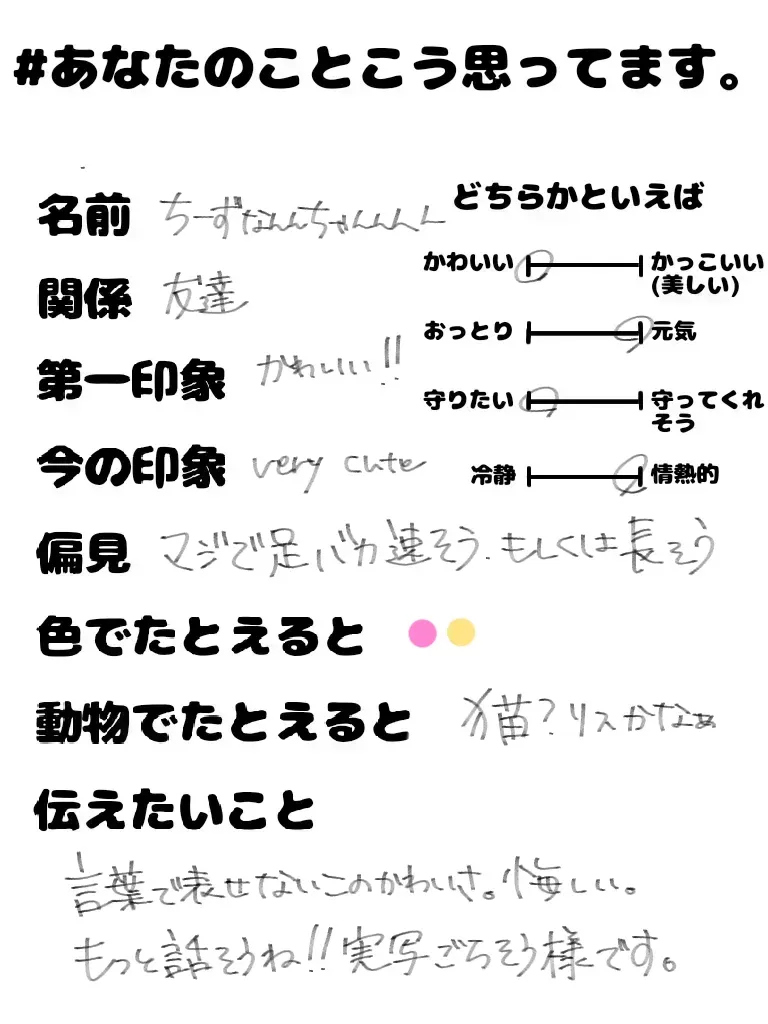 #あなたのことこう思ってます。
名前 ちーずなんんちゃんんんん
関係 友達
第一印象 かわいい!!
今の印象 very cute
どちらかといえば
かわいい かっこいい
(美しい)
おっとり 元気
守りたい 守ってくれ
そう
冷静 情熱的
偏見 マジで足バカ速そう.もしくは長そう
色でたとえると
動物でたとえると 猫?リスかなぁ
伝えたいこと
言葉で表せないこのかわいさ。悔しい。
もっと話そうね!!実写ごちそう様です。